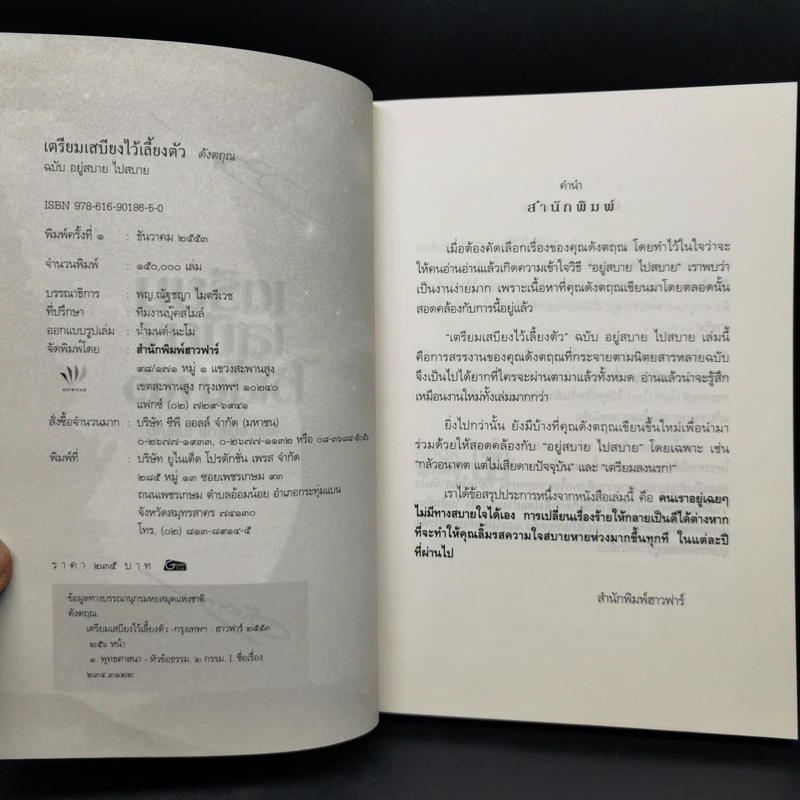 เตรียมเสบียงไว้เลี้ยงตัว ดังตฤณ
ฉบับ อยู่สบาย ไปสบาย
ISBN 978-616-90186-5-0
พิมพ์ครั้งที่ ๑ : ธันวาคม ๒๕๕๓
จำนวนพิมพ์ : ๑๕๐,๐๐๐ เล่ม
บรรณาธิการ : พญ.ณัฐชญา ไมตรีเวช
ที่ปรึกษา : ทีมงานบุ๊คสไมล์
ออกแบบรูปเล่ม : น้ำมนต์-นะโม
จัดพิมพ์โดย : สำนักพิมพ์ฮาวฟาร์
๙๘/๑๗๑ หมู่ ๑ แขวงสะพานสูง
เขตสะพานสูง กรุงเทพฯ ๑๐๒๔๐
HOWFAR
แฟกซ์ (๐๒) ๗๒๙-๖๙๔๑
สั่งซื้อจำนวนมาก : บริษัท ซีพี ออลล์ จำกัด (มหาชน)
๐-๒๖๗๗-๑๙๓๓, ๐-๒๖๗๗-๑๑๓๒ หรือ
พิมพ์ที่ : บริษัท ยูไนเต็ด โปรดักชั่น เพรส จำกัด
๒๘๕ หมู่ ๑๓ ซอยเพชรเกษม ๙๓
ถนนเพชรเกษม ตำบลอ้อมน้อย อำเภอกระทุ่มแบน
จังหวัดสมุทรสาคร ๗๔๑๓๐
โทร. (๐๒) ๘๑๓-๘๙๑๔-๕
ราคา ๒๓๕ บาท
ข้อมูลทางบรรณานุกรมหอสมุดแห่งชาติ
ดังตฤณ.
เตรียมเสบียงไว้เลี้ยงตัว -กรุงเทพฯ : ฮาวฟาร์ ๒๕๕๓
๒๕๖ หน้า
๑. พุทธศาสนา - หัวข้อธรรม. ๒ กรรม. I. ชื่อเรื่อง
๒๙๔.๓๑๒๒
คำนำ
สำนักพิมพ์
เมื่อต้องคัดเลือกเรื่องของคุณดังตฤณ โดยทำไว้ในใจว่าจะ
ให้คนอ่านอ่านแล้วเกิดความเข้าใจวิธี "อยู่สบาย ไปสบาย" เราพบว่า
เป็นงานง่ายมาก เพราะเนื้อหาที่คุณดังตฤณเขียนมาโดยตลอดนั้น
สอดคล้องกับการนี้อยู่แล้ว
"เตรียมเสบียงไว้เลี้ยงตัว" ฉบับ อยู่สบาย ไปสบาย เล่มนี้
คือการสรรงานของคุณดังตฤณที่กระจายตามนิตยสารหลายฉบับ
จึงเป็นไปได้ยากที่ใครจะผ่านตามาแล้วทั้งหมด อ่านแล้วน่าจะรู้สึก
เหมือนงานใหม่ทั้งเล่มมากกว่า
ยิ่งไปกว่านั้น ยังมีบ้างที่คุณดังตฤณเขียนขึ้นใหม่เพื่อนำมา
ร่วมด้วยให้สอดคล้องกับ "อยู่สบาย ไปสบาย" โดยเฉพาะ เช่น
"กลัวอนาคต แต่ไม่เสียดายปัจจุบัน" และ "เตรียมลงนรก!"
เราได้ข้อสรุปประการหนึ่งจากหนังสือเล่มนี้ คือ คนเราอยู่เฉยๆ
ไม่มีทางสบายใจได้เอง การเปลี่ยนเรื่องร้ายให้กลายเป็นดีได้ต่างหาก
ที่จะทำให้คุณลิ้มรสความใจสบายหายห่วงมากขึ้นทุกที ในแต่ละปี
ที่ผ่านไป
สำนักพิมพ์ฮาวฟาร์